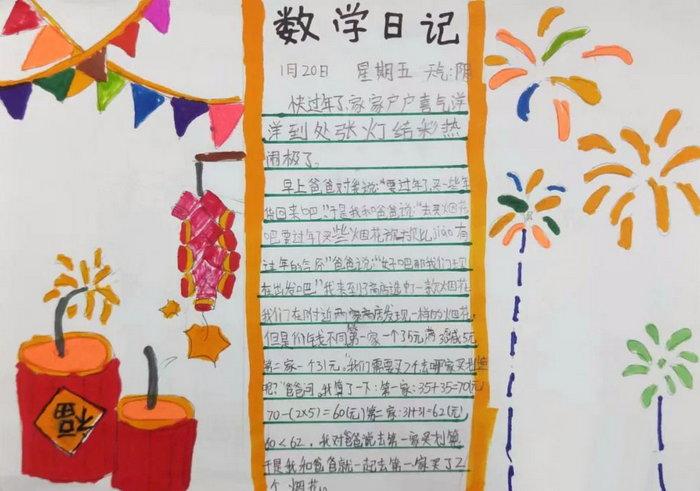 数学日记
1月20日 星期五 天气:阴
快过年了,家家户户喜气洋
洋到处张灯结彩热
闹极了。
早上爸爸对我说:“要过年了,买一些年
货回来吧。”于是我和爸爸说:“去买烟花
吧要过年了买些烟花 jiān有
过年的气分”爸爸说:“好吧那我们现
在出发吧。”我来到 商店选中了一款烟花
我们在附近两家商店发现一样的烟花,
但是价钱不同第一家一个35元满 减5元
第二家一个31元。“我们需要买2个去哪家买划算
呢?”爸爸问。我算了一下:第一家:35+35=70(元)
70-(2×5)=60(元)第二家:31+31=62(元)
60<62,我对爸爸说去第一家买划算
于是我和爸爸就一起去第一家买了2
个烟花。
福